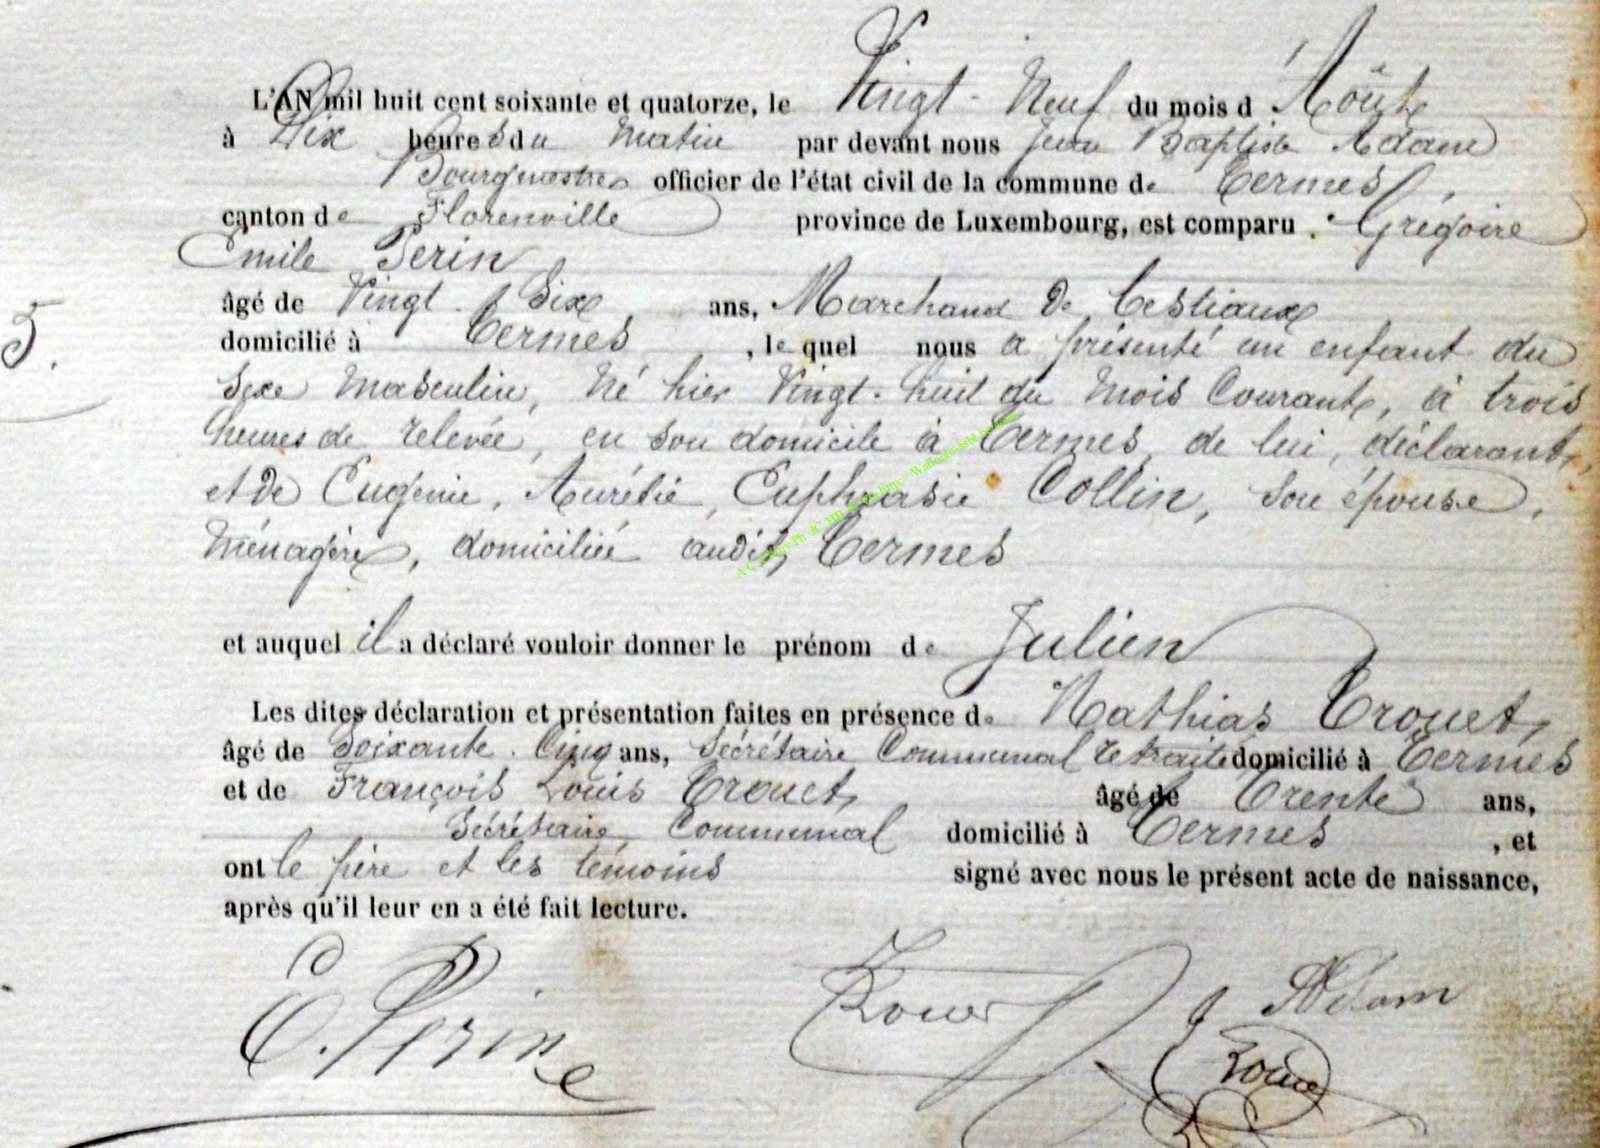 L'AN mil huit cent soixante et quatorze, le Vingt-Neuf du mois d'Aôut
à Dix heures du Matin par devant nous Jean Baptiste Adam
Bourgmestre officier de l'état civil de la commune de Termes,
canton de Florenville province de Luxembourg, est comparu Grégoire
Emile Perin
âgé de Vingt-Six ans, Marchand de Bestiaux
domicilié à Termes, lequel nous a présenté un enfant du
5.
Sexe Masculin, Né hier Vingt-huit du Mois Courant, à trois
heures de relevée, en son domicile à Termes, de lui, déclarant,
et de Eugénie, Aurélie, Euphrasie Collin, Son épouse,
Ménagère, domiciliée audit Termes
et auquel il a déclaré vouloir donner le prénom de Julien
Les dites déclaration et présentation faites en présence de Mathias Trouet,
âgé de Soixante-Cinq ans, Secrétaire Communal retraité domicilié à Termes
et de François Louis Trouet, âgé de Trente ans,
Secrétaire Communal domicilié à Termes, et
ont le père et les témoins signé avec nous le présent acte de naissance,
après qu'il leur en a été fait lecture.
E. Perin
Trouet
Adam
Trouet